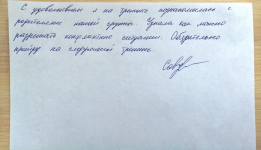 С удовольствием я на тренинге познакомилась с
родителями нашей группы. Узнала как можно
разрешать конфликтные ситуации. Обязательно
приду на следующий тренинг.